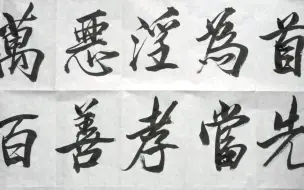 萬惡淫為首
百善孝當先